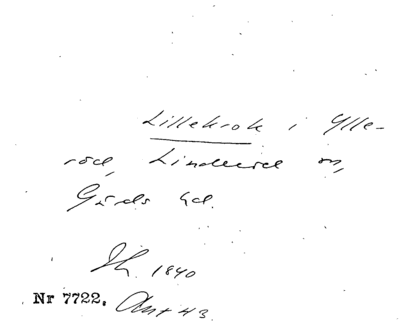 Lillekrok i Ylle-
röd, Linderöd sn,
Gärds hd.
1840
Nr 7722, Ant 43